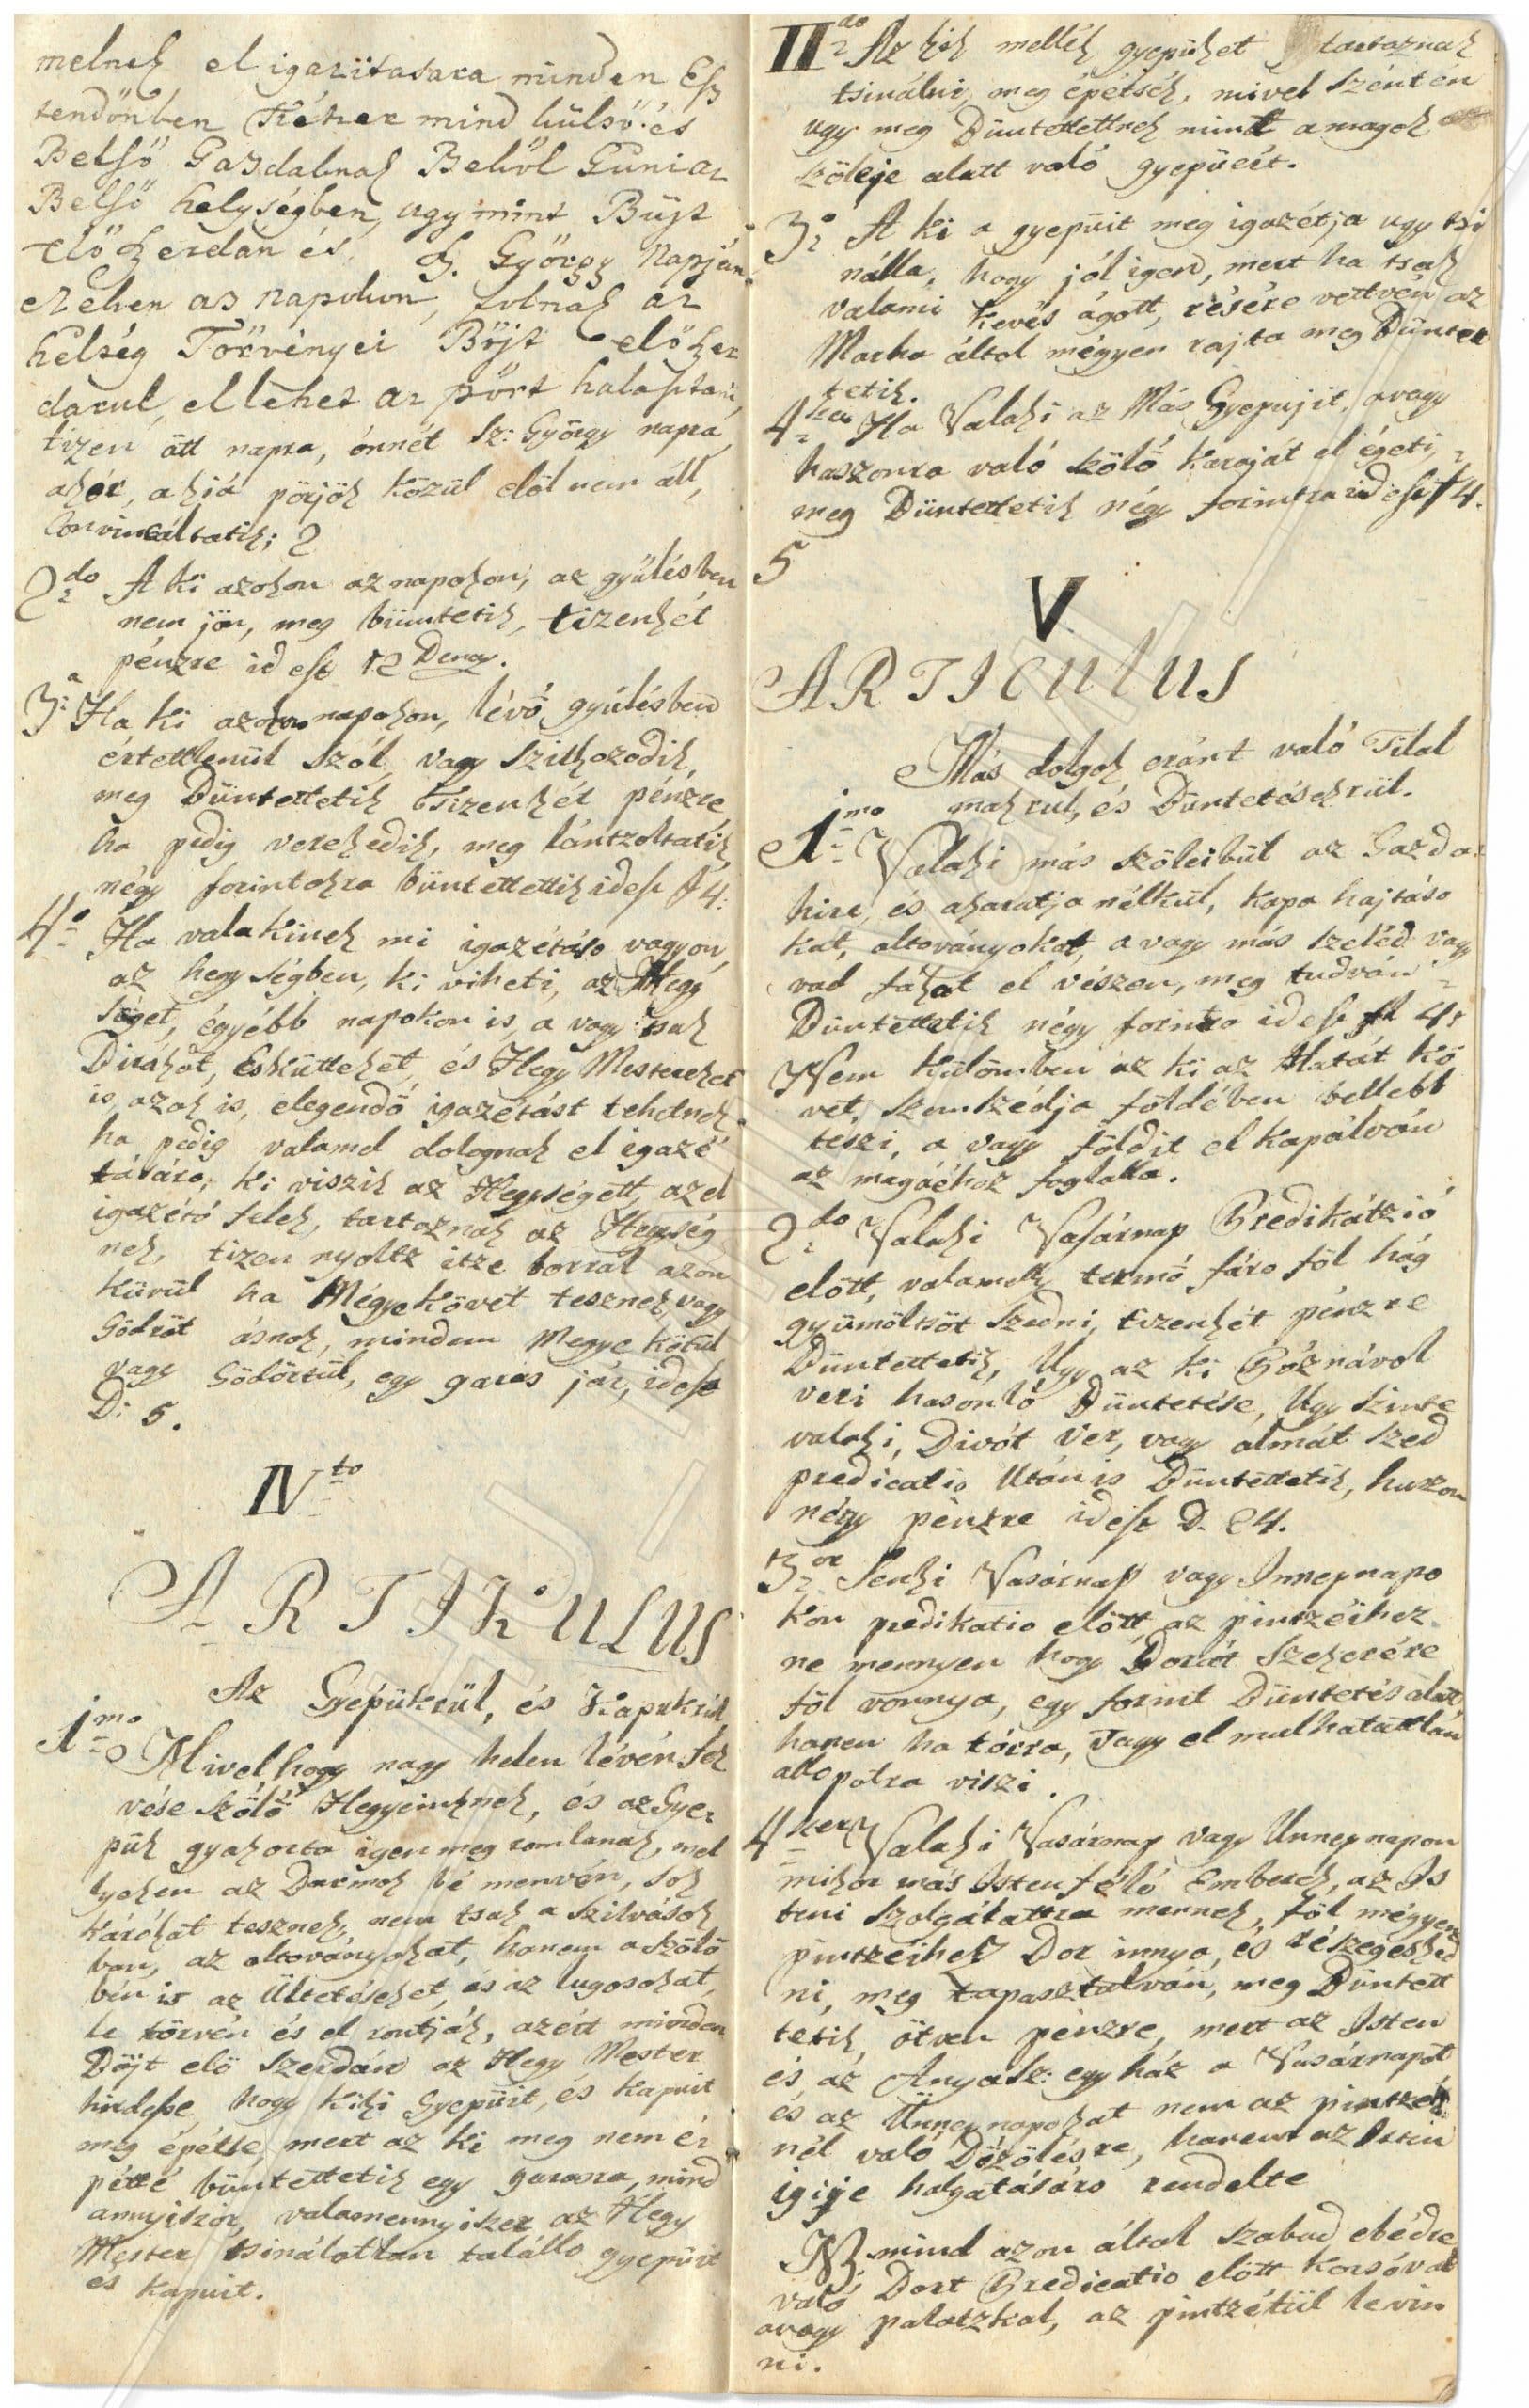 melnek el igazitasara minden Esz
tendönben Kétzer mind külsö és
Belsö Gazdaknak Belöl
Belsö helységben, ugy mint Büjt
elö Szerdan és S. György Napján
ezeken az napokon, folnak az
helség Törvényei Böjt elö Szer
darul, el lehet az pört halasztani,
tizen ött napra, önnét Sz: György napra
akör, a kiá pörjök közül elöl nem áll,
Convincáltatik;
2do A ki azokon az napokon, az gyülésben
nem jön, meg büntetik, tizenkét
pénzre id est 12 Denar.
3a Ha ki azokon napokon, lévö gyülésben
értettlenül szól, vagy szitkozodik,
meg Büntettetik Tizenkét pénzre,
ha pedig verekedik, meg lántzoltatik,
négy forintokra büntettettik id est f 4:
4o Ha valakinek mi igazétása vagyon,
az hegységben, ki viheti, az Hegy
séget, égyébb napokon is, a vagy tsak
Birákot, Esküttekét, és Hegy Mesterekét
is, azok is, elegendö igazétást tehetnek
ha pedig valamel dolognak el igazé
tására, ki viszik az Hegységett, azel
igazétó felek, tartoznak az Hegység
nek, tizen nyoltz itze borral azon
kivül ha Mégye követ tesznek, vagy
Gödröt ásnak, mindem Megye kötül
vagy Gödörtül, egy garas jár, id est
D: 5.
IVto
ARTIKULUS
Az Gyepükrül, és Kapukrúl
1mo Mivelhogy nagy helen lévén fek
vése szölö Hegyeinknek, és az Gye
pük gyakorta igen meg romlanak, mel
lyeken az Barmok bé menvén, sok
károkat tesznek, nem tsak a szilvások
ban, az oltoványokat, hanem a szölö
ben is az Ültetésekét, és az lugosokat,
le törvén és el rontják, azért minden
Böjt elö Szerdán az Hegy Mester
hirdesse, hogy kiki Gyepüit, és kapuit
meg épétse, mert az ki meg nem é
pétté büntettetik egy garasra, mind
annyiszor, valamennyiszer az Hegy
Mester tsinálatlan tallállo gyepüit
és kapuit.
IIdo Az kik mellék gyepüket tartoznak
tsinálni, meg épétsék, mivel szentén
ugy meg Büntettettnek mint a magok
szöleje alatt való gyepüért.
3o A ki a gyepüit meg igazétja ugy tsi
nálla, hogy jól igend, mert ha tsak
valami kevés ágott, résére vettvén az
Marha által mégyen rajta meg Büntet
tetik.
4ter Ha Valaki az Más Gyepujit, avagy
haszonra való szölö karaját el égeti,
meg Büntettetik négy forintra id est f 4.
5
V
ARTICULUS
Más dolgok eránt való Tilal
makrul, és Büntetésekrül.
1mo Valaki más szöleibül az Gazda
hire, és akaratja nélkül, kapa hajtáso
kat, altoványokat, a vagy más szeléd vagy
vad fákat el vészen, meg tudván
Büntettetik négy forintra id est fl 4.
Nem külömben az ki az Hatát kö
vet, szemszédja földében bellebb
teszi, a vagy földit el kapálván
az magáéhoz foglalta.
2do Valaki Vasárnap Predikátzió
elött, valamelly termö fára föl hág
gyümöltsöt szedni, tizenkét pénzre
Büntettetik, Ugy az ki Póznával
veri hasonló Büntetése, Ugy szinte
valaki, Diót ver, vagy almát szed
predicatio Után is Büntettetik, huszon
négy pénzre id est D. 24.
3or Senki Vasárnap vagy Innepnapo
kon predikatio elött az pintzéihez
ne mennyen hogy Borát szekerére
föl vonnya, egy forint Büntetés alatt
hanem ha torra, vagy el mulhatattlán
allopotra viszi.
4ter Valaki Vasárnap vagy Unnep napon
mikor más Isten féló Emberek, az Is
teni szolgálattra mennek, föl mégyen
pintzéihez Bor innya, és részegesked
ni, meg tapasztalván, meg Büntett
tetik, ötven pénzre, mert az Isten
és az Anya Sz: egyház a Vasárnapot
és az Ünnepnapokat nem az pintzék
nél való Dözölésre, hanem az Isten
igije halgatására rendelte
NB mind azon által szabad ebédre
való Bort Predicatio elött korsóval
avagy palatzkal, az pintzétül le vin
ni.